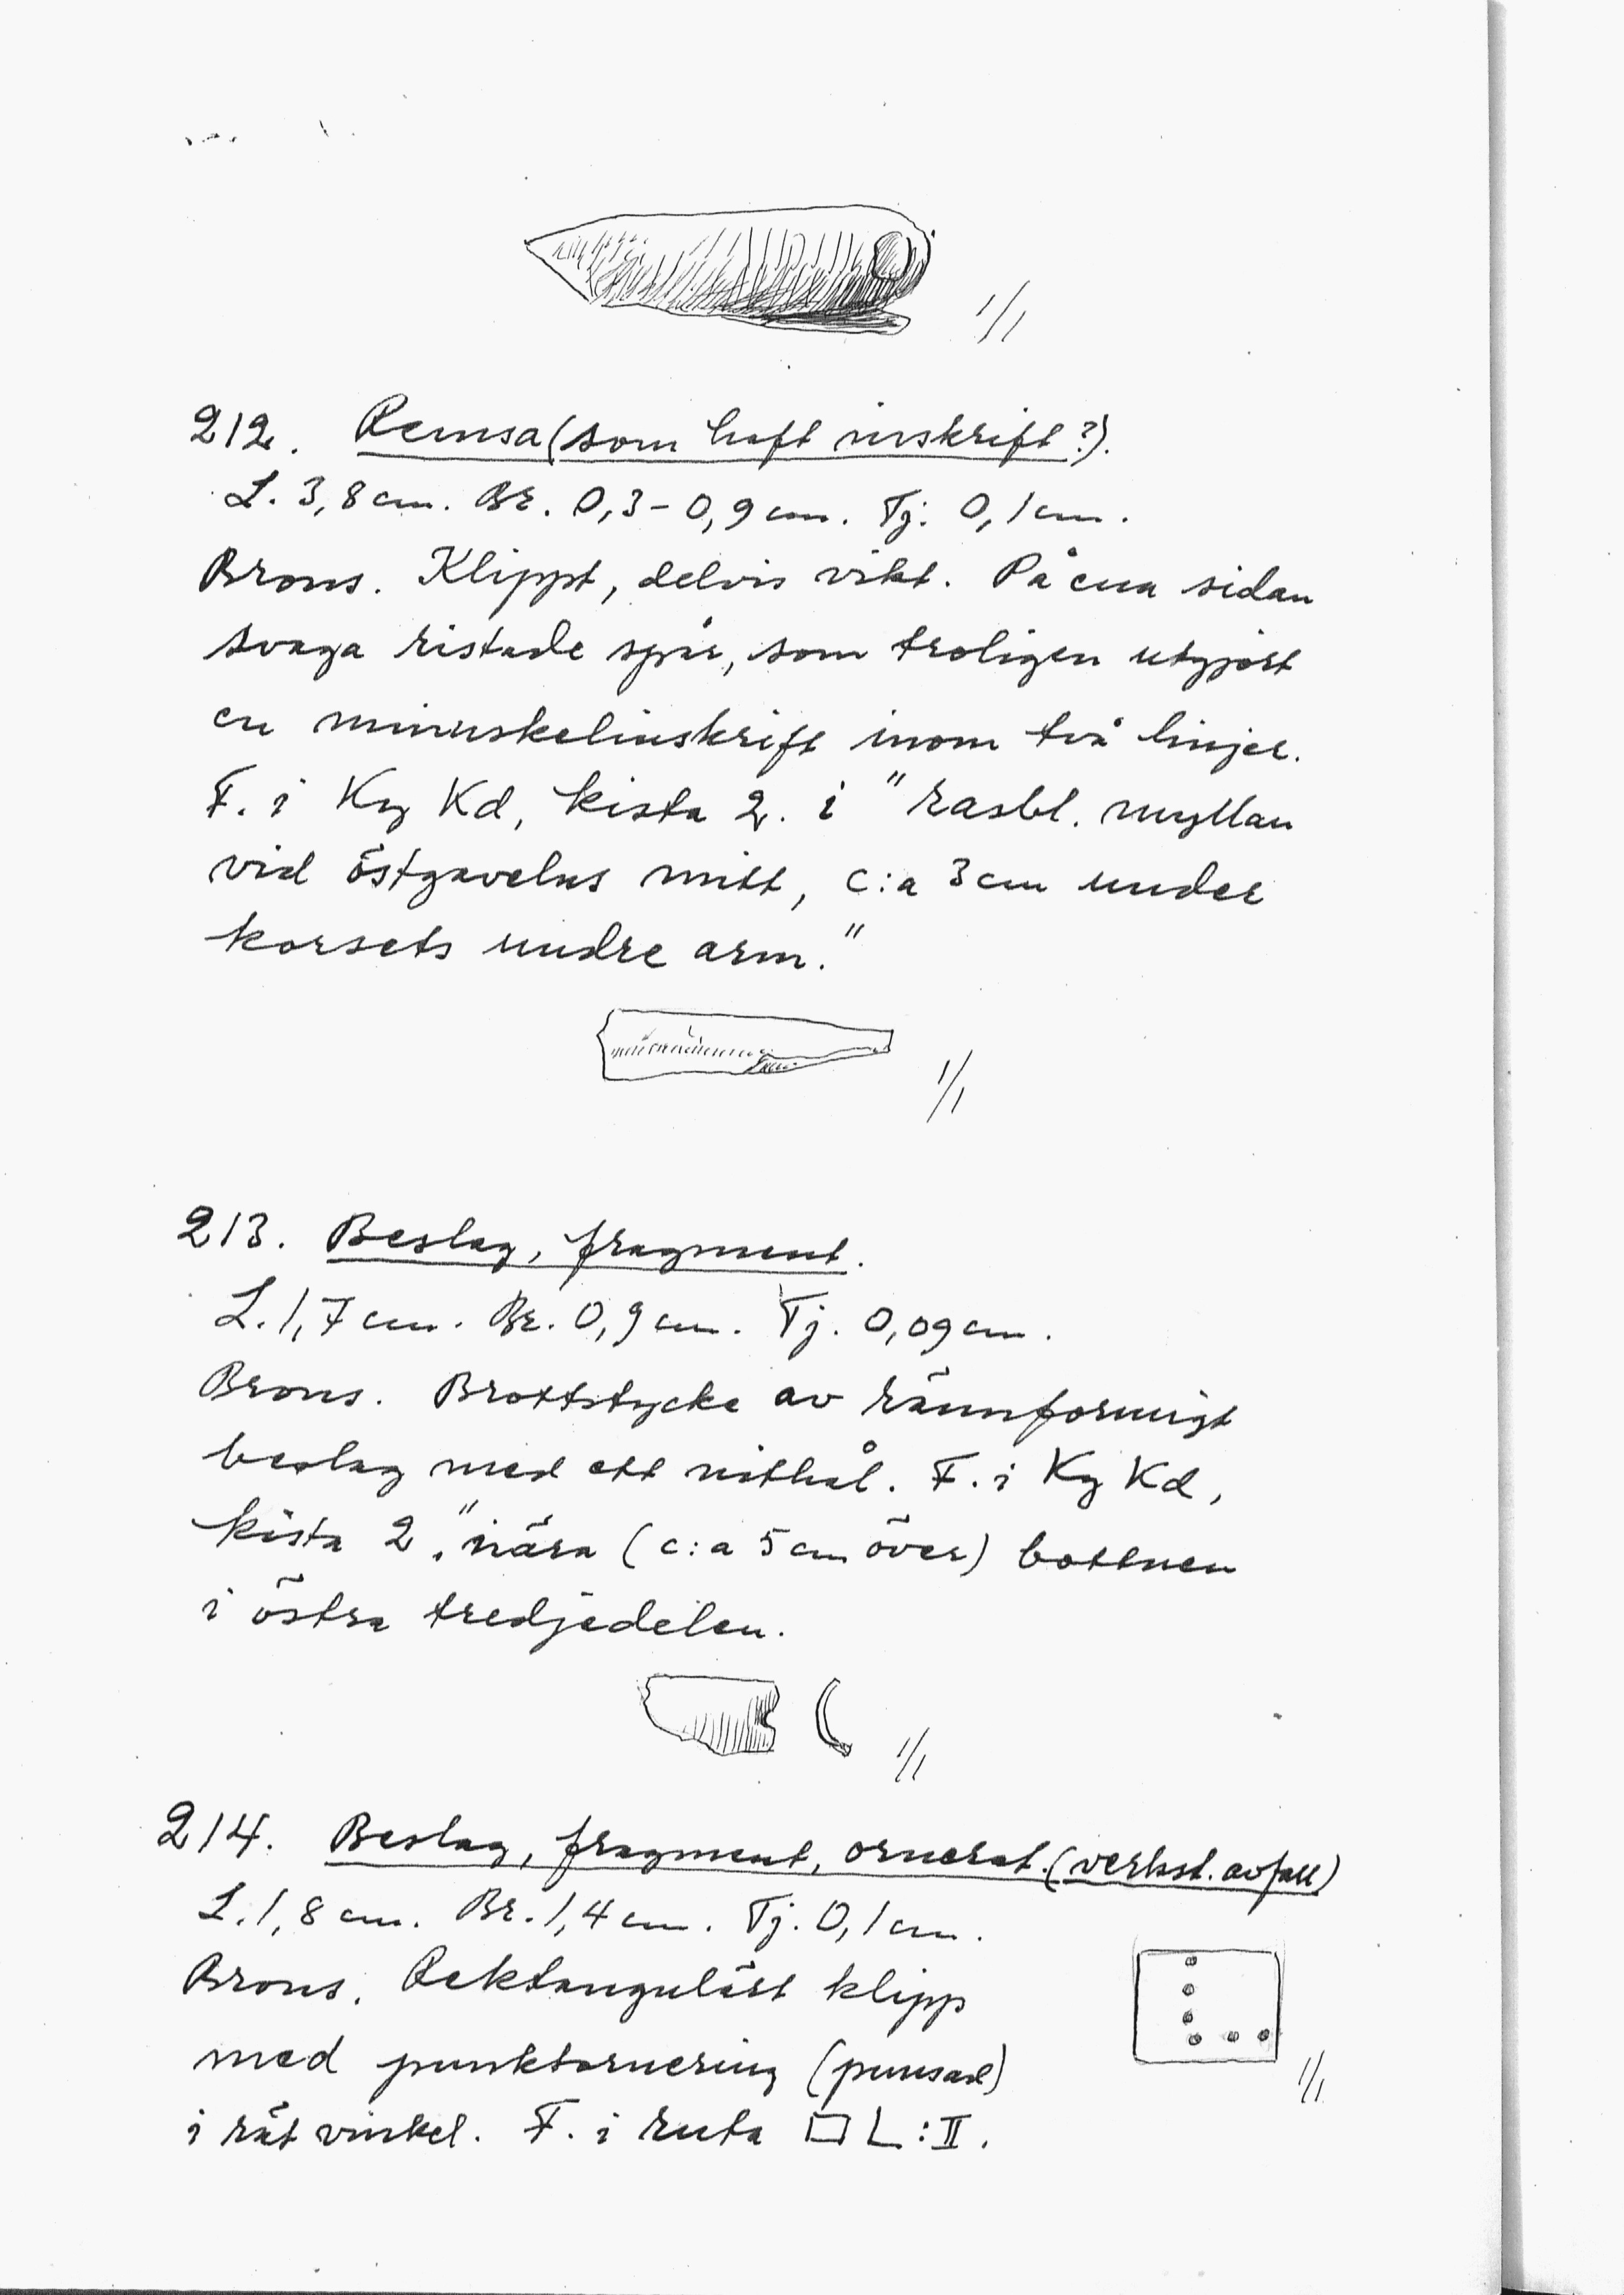 1/1
212. Remsa (som haft inskrift?).
L. 3,8 cm. Br. 0,3 - 0,9 cm. Tj: 0,1 cm.
Brons. Klippt, delvis vikt. På ena sidan
svaga ristade spår, som troligen utgjort
en minuskelinskrift inom två linjer.
F. i Kg Kd, kista 2. i "rasbl. myllan
vid östgavelns mitt, c:a 3 cm under
korsets undre arm."
1/1
213. Beslag, fragment.
L. 1,7 cm. Br. 0,9 cm. Tj. 0,09 cm.
Brons. Brottstycke av rännformigt
beslag med ett nithål. F. i Kg Kd,
kista 2, "nära (c:a 5 cm över) bottnen
i östra tredjedelen.
1/1
214. Beslag, fragment, ornerat. (verkst. avfall)
L. 1,8 cm. Br. 1,4 cm. Tj. 0,1 cm.
Brons. Rektangulärt klipp
med punktornering (punsad)
i rät vinkel. F. i ruta □ L:II.
1/1